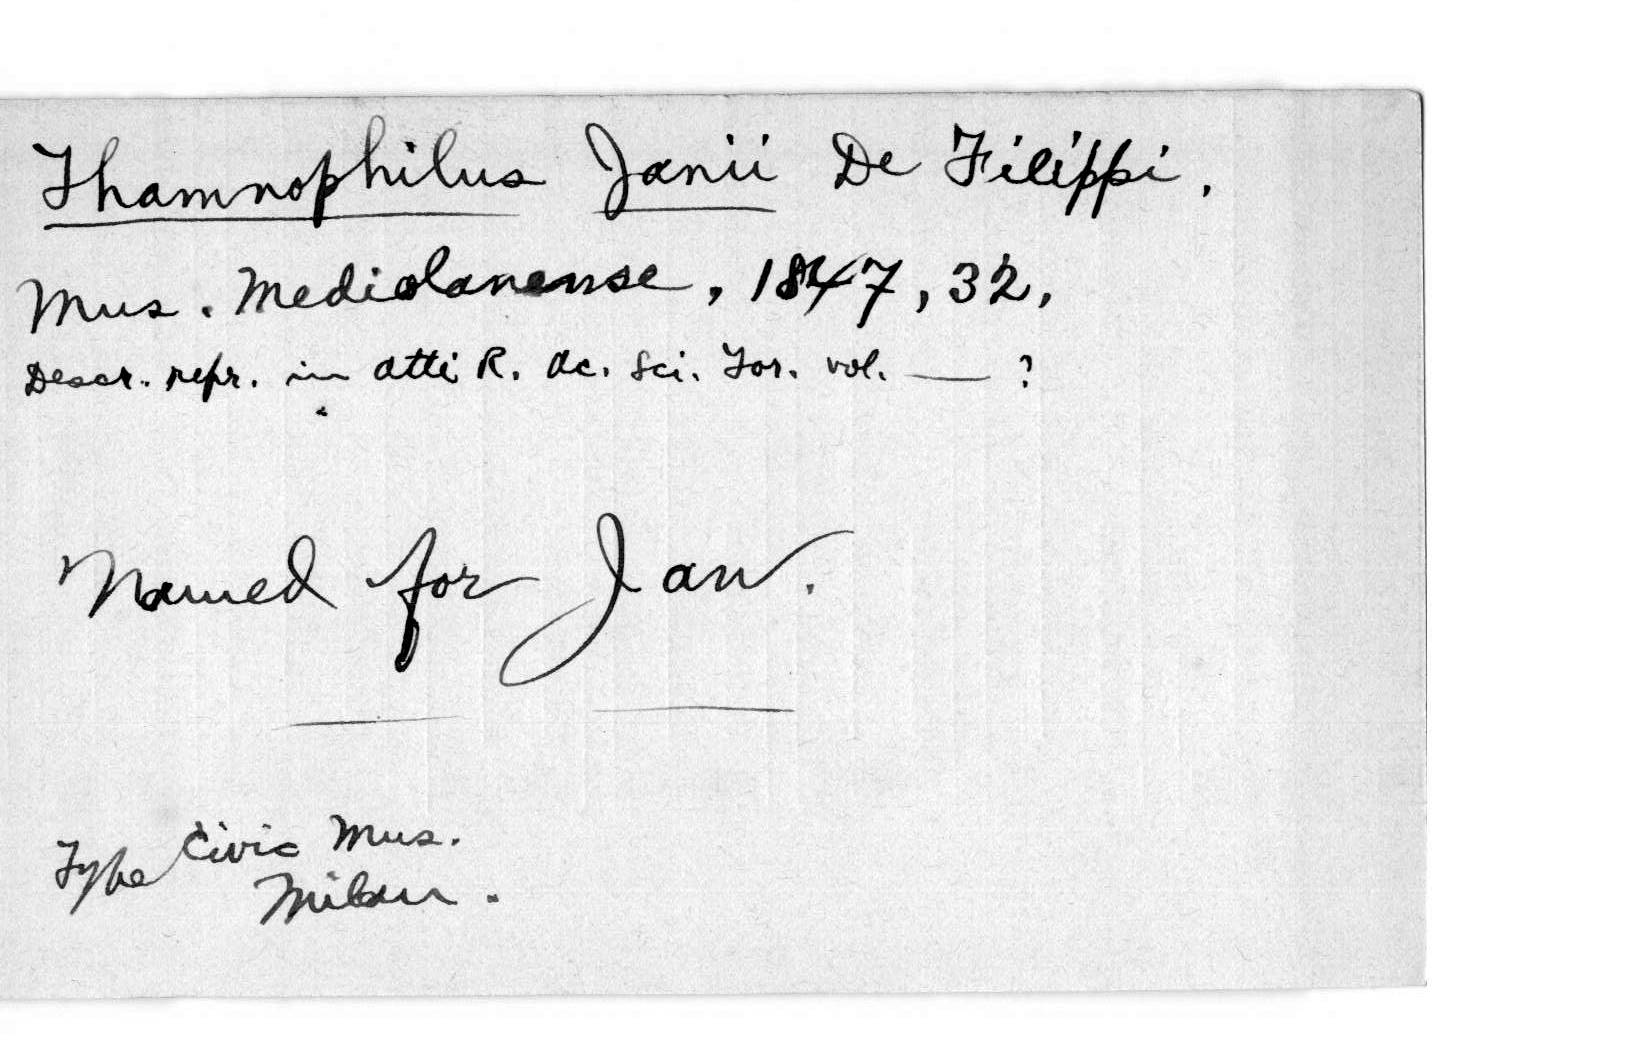 Thamnophilus Janii De Filippi,
Mus. Mediolanense, 1847, 32,
Descr. repr. in Atti R. Ac. Sci. Tor. vol. — ?
Named for Jan.
Type Civic Mus.
Milan.